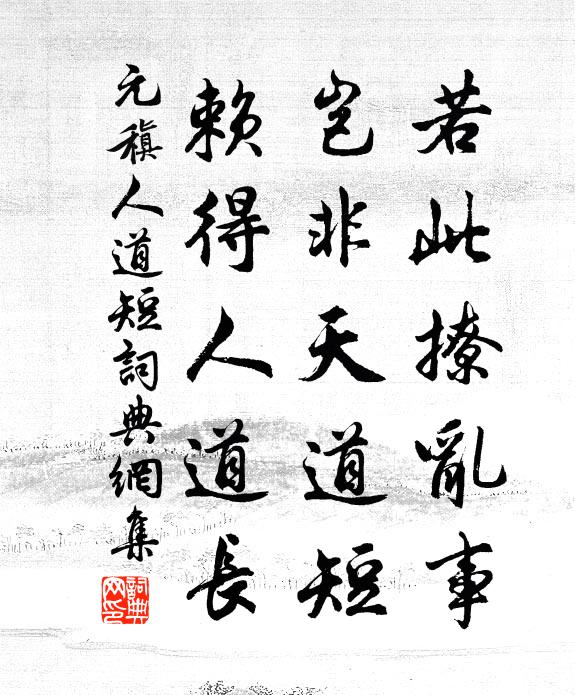 若此撩亂事
豈非天道短
賴得人道長
元稹人道短詞典網集
詞典網印